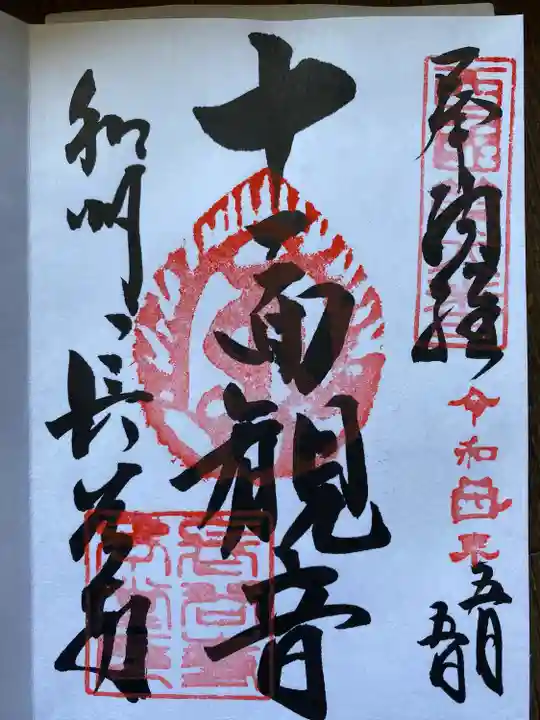 奉納経
令和四年
五月
五日
十一面観音
和州、長谷寺